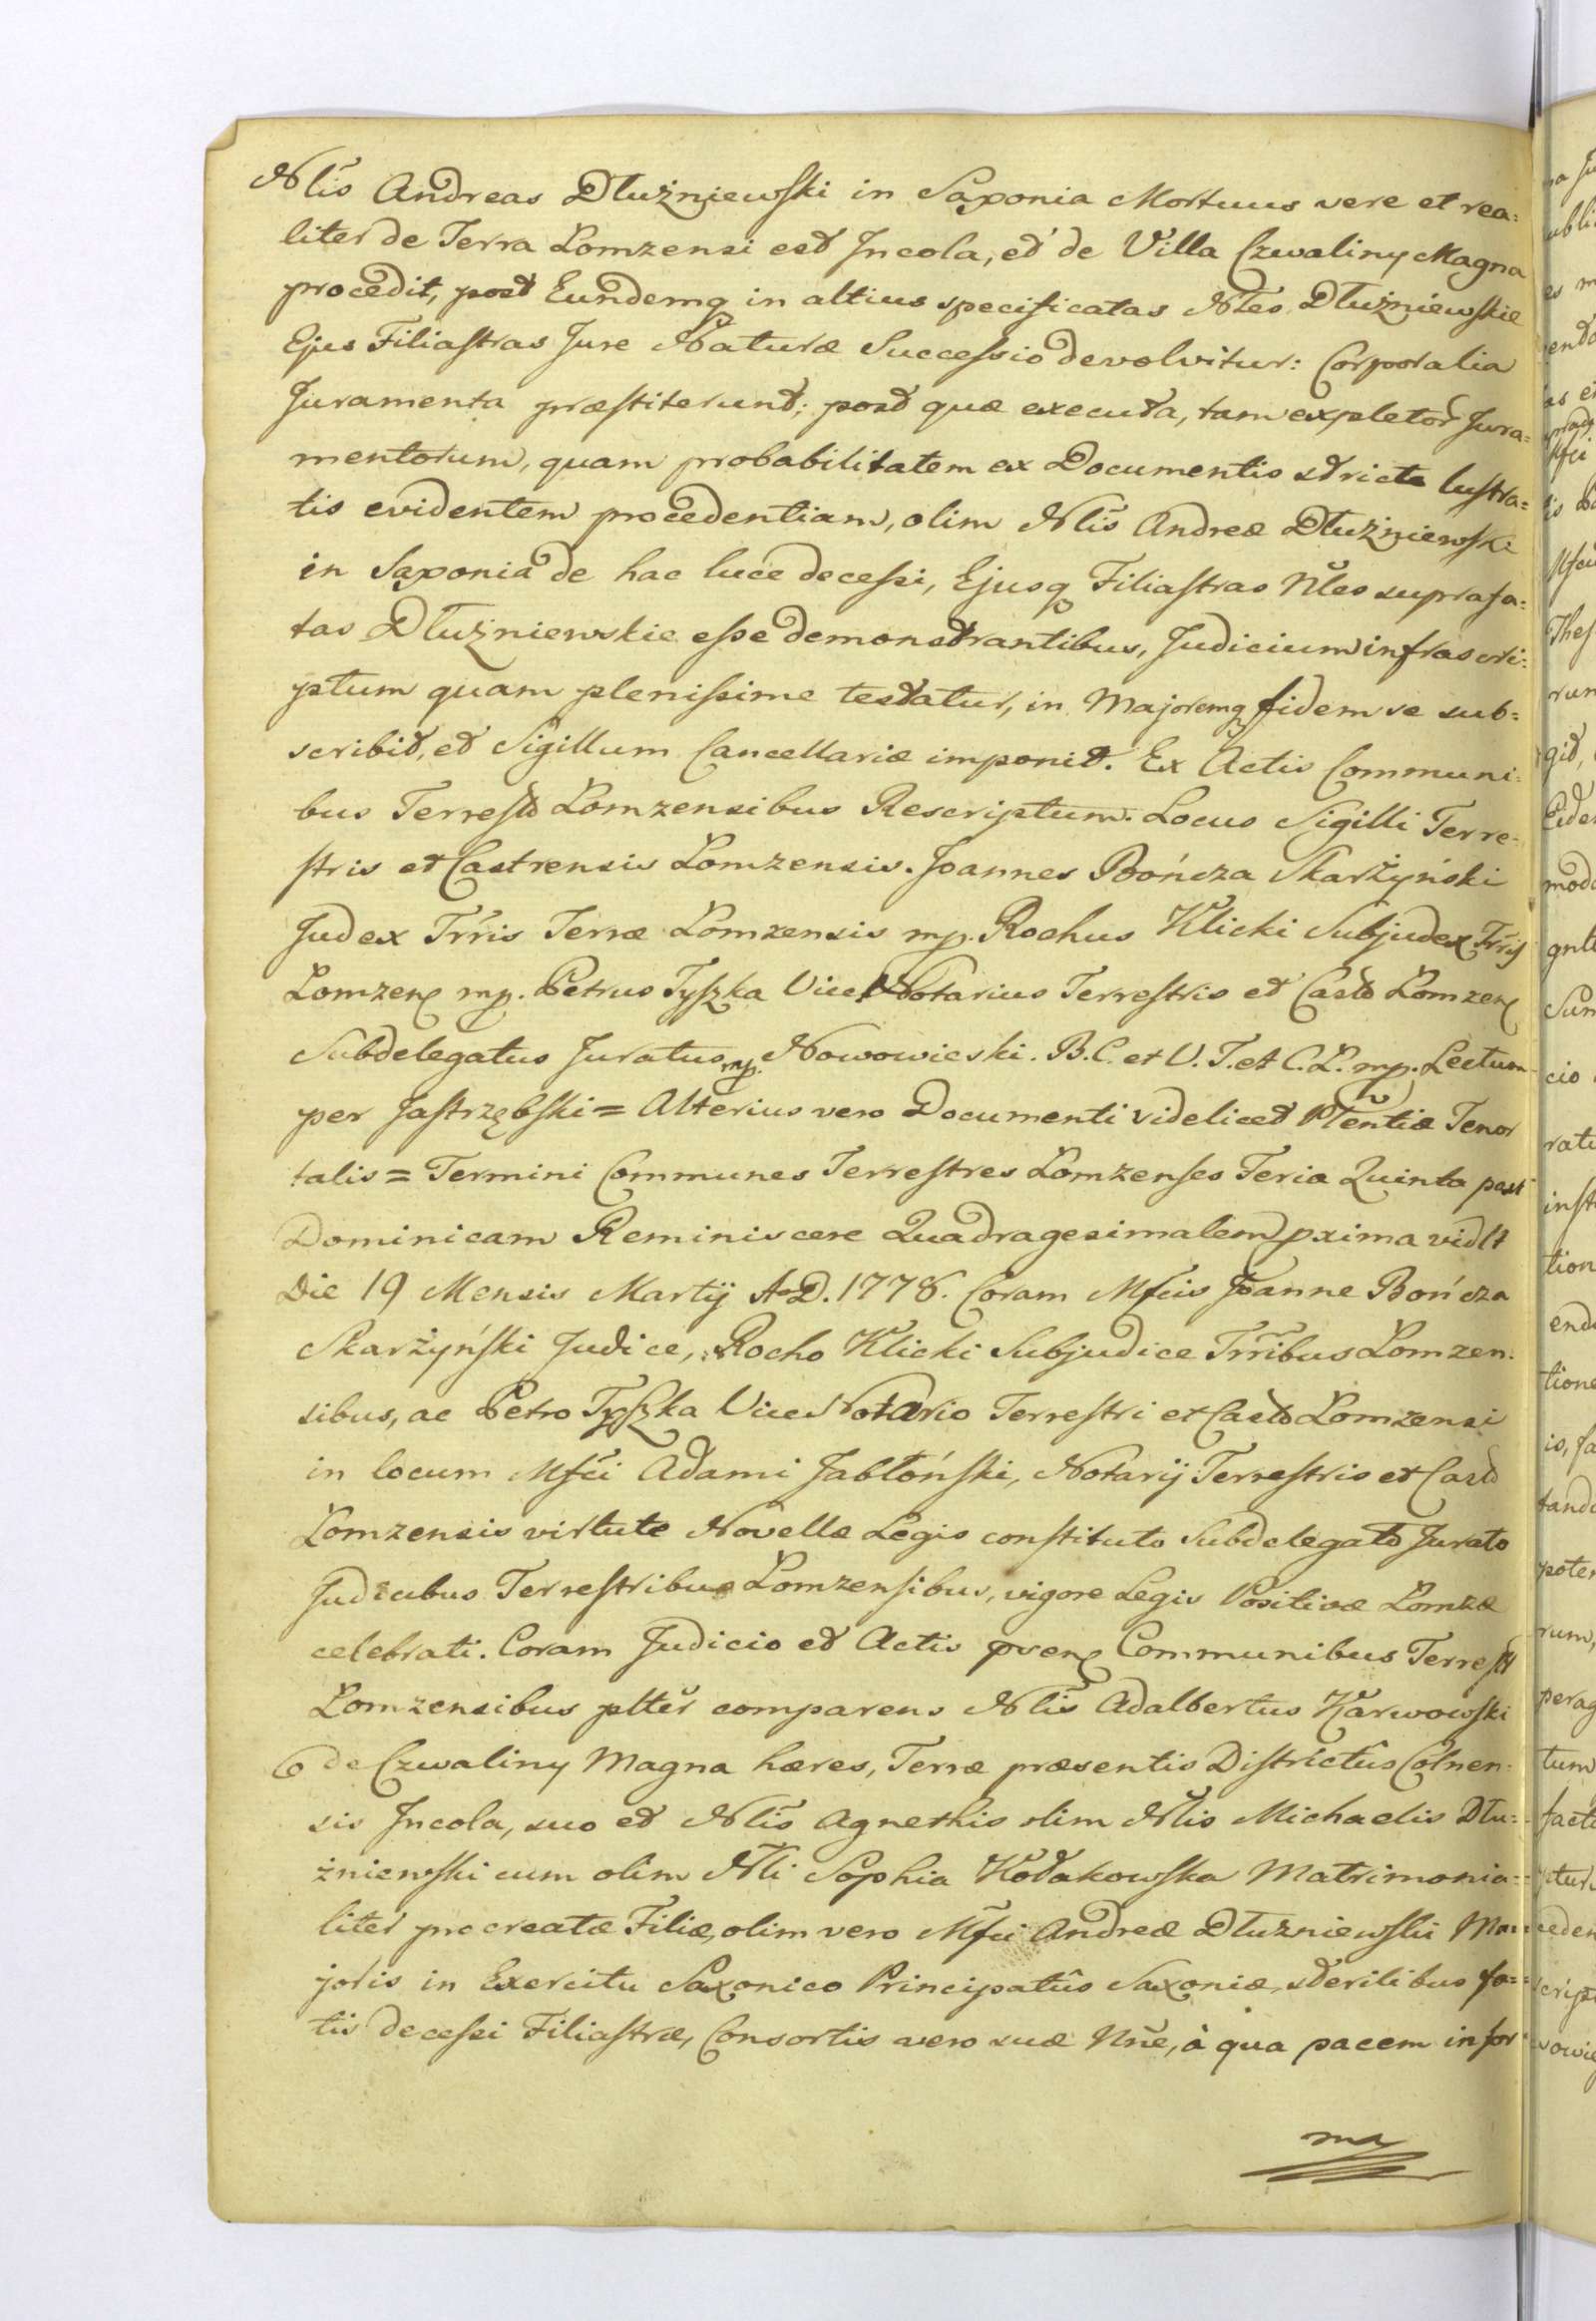 Nlis Andreas Dłużniewski in Saxonia Mortuus vere et rea=
liter de Terra Lomzensi est Incola, et de Villa Czwaliny Magna
procedit, post Eundemq in altius specificatas Nles Dłużniewskie
Ejus Filiastras Jure Naturæ Successio devolvitur: Corporalia
Juramenta præstiterunt; post quæ executa, tam expletor Jura=
mentorum, quam probabilitatem ex Documentis stricte lustra=
tis evidentem procedentiam, olim Nlis Andreæ Dłużniewski
in Saxonia de hac luce decessi, Ejusq Filiastras Nles suprafa=
tas Dłużniewskie esse demonstrantibus, Judicium infrascri=
ptum quam plenissime testatur, in Majoremq fidem se sub=
scribit, et Sigillum Cancellariæ imponit. Ex Actis Communi=
bus Terrest Lomzensibus Rescriptum. Locus Sigilli Terre-
stris et Castrensis Lomzensis. Joannes Bończa Skarżyński
Judex Trris Terræ Lomzensis mp. Rochus Klicki Subjudex Trris
Lomzen mp. Petrus Tyszka Vice Notarius Terrestris et Cast Lomzen
Subdelegatus Juratus mp. Nowowieski. B.C. et V.T. et C.L. mp. Lectum
per Jastrzębski = Alterius vero Documenti videlicet Pltentiæ Tenor
talis = Termini Communes Terrestres Lomzenses Feria Quinta post
Dominicam Reminiscere Quadragesimalem pxima vidlt
Die 19 Mensis Martij A.D. 1778. Coram Mfcis Joanne Bończa
Skarżyński Judice, Rocho Klicki Subjudice Trribus Lomzen=
sibus, ac Petro Tyszka Vice Notario Terrestri et Cast Lomzensi
in locum Mfci Adami Jabłoński, Notarij Terrestris et Cast
Lomzensis virtute Novellæ Legis constituto Subdelegato Jurato
Judicibus Terrestribus Lomzensibus, vigore Legis Positivæ Lomzæ
celebrati. Coram Judicio et Actis psen Communibus Terrest
Lomzensibus plter comparens Nlis Adalbertus Karwowski
de Czwaliny Magna hæres, Terræ præsentis Districtûs Colnen=
sis Incola, suo et Nlis Agnethis olim Nlis Michaelis Dłu=
żniewski cum olim Nli Sophia Kodakowska Matrimonia=
liter procreatæ Filiæ, olim vero Mfci Andreæ Dłużniewski Ma=
joris in Exercitu Saxonico Principatûs Saxoniæ, sterilibus fa=
tis decessi Filiastræ, Consortis vero suæ Nne, à qua pacem infor